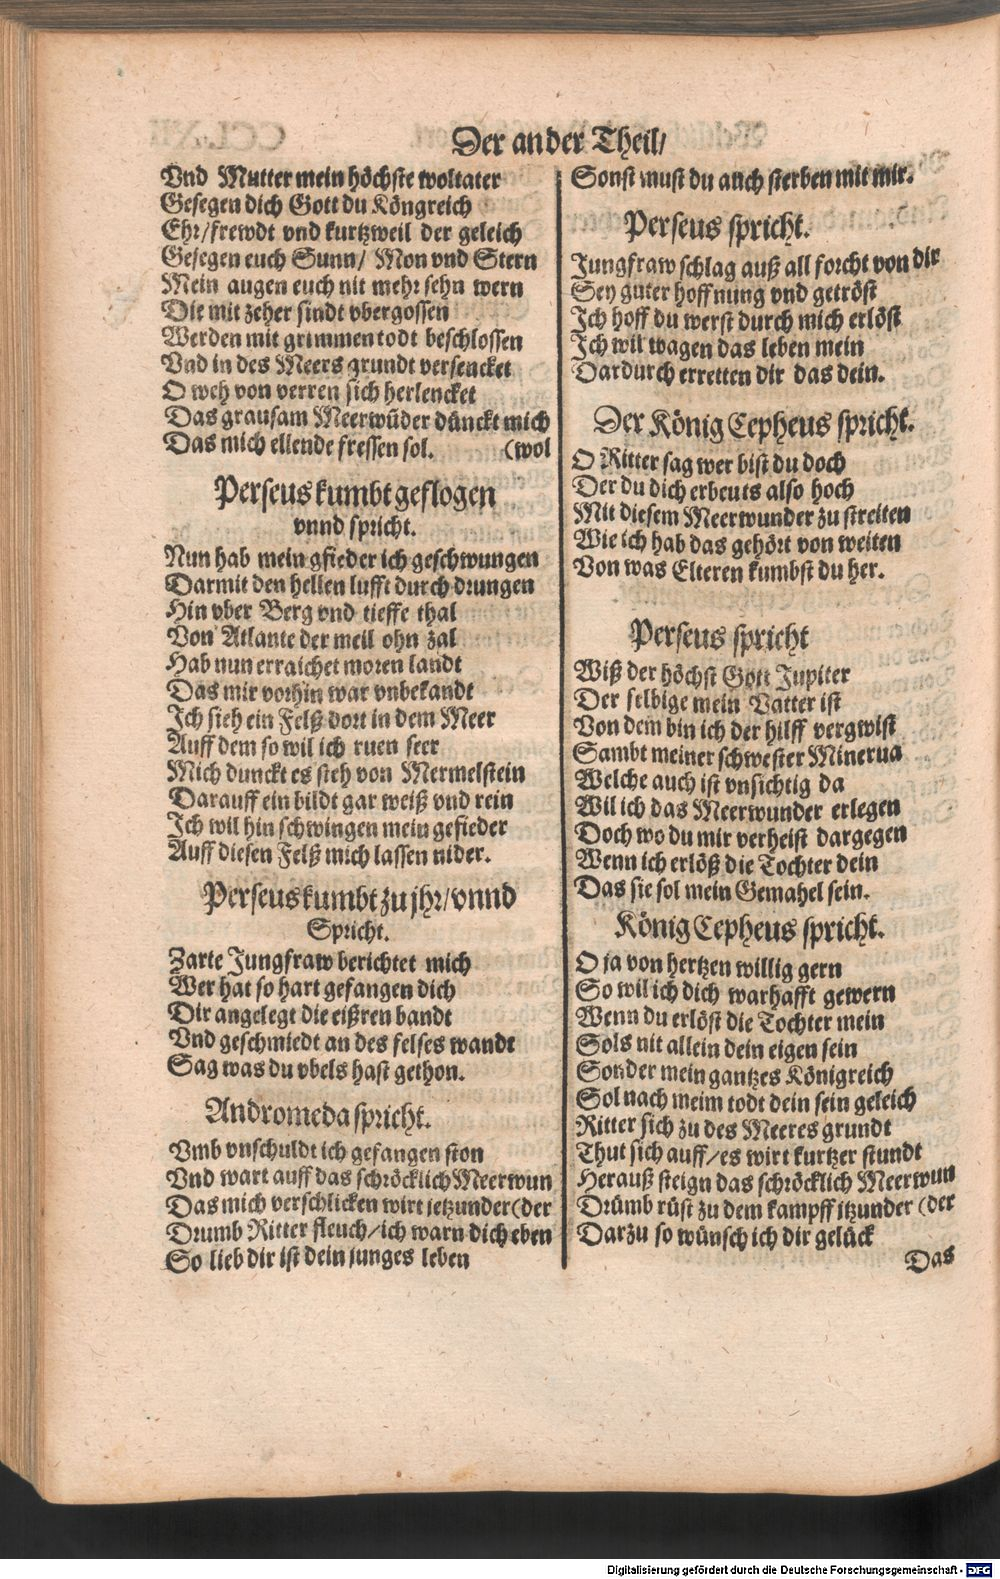 Der ander Theil/
Vnd Mutter mein höchste woltater
Gesegen dich Gott du Köngreich
Ehr/frewdt vnd kurtzweil der geleich
Gesegen euch Sunn/ Mon vnd Stern
Mein augen euch nit mehr sehn wern
Die mit zeher sindt vbergossen
Werden mit grimmen todt beschlossen
Vnd in des Meers grundt versencket
O weh von verren sich herlencket
Das grausam Meerwüder dünckt mich
Das mich ellende fressen sol. (wol
Perseus kumbt geflogen
vnnd spricht.
Nun hab mein gfieder ich geschwungen
Darmit den hellen lufft durch drungen
Hin vber Berg vnd tieffe thal
Von Atlante der meil ohn zal
Hab nun erraichet moren landt
Das mir vorhin war vnbekandt
Ich sieh ein Felß dort in dem Meer
Auff dem so wil ich ruen seer
Mich dunckt es steh von Mermelstein
Darauff ein bildt gar weiß vnd rein
Ich wil hin schwingen mein gefieder
Auff diesen Felß mich lassen nider.
Perseus kumbt zu jhr/vnnd
Spricht.
Zarte Jungfraw berichtet mich
Wer hat so hart gefangen dich
Dir angelegt die eißren bandt
Vnd geschmiedt an des felses wandt
Sag was du vbels hast gethon.
Andromeda spricht.
Vmb vnschuldt ich gefangen ston
Vnd wart auff das schröcklich Meerwun
Das mich verschlicken wirt jetzunder (der
Drumb Ritter fleuch/ich warn dich eben
So lieb dir ist dein junges leben
Sonst must du auch sterben mit mir.
Perseus spricht.
Jungfraw schlag auß all forcht von dir
Sey guter hoffnung vnd getröst
Ich hoff du werst durch mich erlöst
Ich wil wagen das leben mein
Dardurch erretten dir das dein.
Der König Cepheus spricht.
O Ritter sag wer bist du doch
Der du dich erbeuts also hoch
Mit diesem Meerwunder zu streiten
Wie ich hab das gehört von weiten
Von was Elteren kumbst du her.
Perseus spricht
Wiß der höchst Gott Jupiter
Der selbige mein Vatter ist
Von dem bin ich der hilff vergwist
Sambt meiner schwester Minerua
Welche auch ist vnsichtig da
Wil ich das Meerwunder erlegen
Doch wo du mir verheist dargegen
Wenn ich erlöß die Tochter dein
Das sie sol mein Gemahel sein.
König Cepheus spricht.
O ja von hertzen willig gern
So wil ich dich warhafft gewern
Wenn du erlöst die Tochter mein
Sols nit allein dein eigen sein
Sonder mein gantzes Königreich
Sol nach meim todt dein sein geleich
Ritter sich zu des Meeres grundt
Thut sich auff/es wirt kurtzer stundt
Herauß steign das schröcklich Meerwun
Drümb rüst zu dem kampff itzunder (der
Darzu so wünsch ich dir gelück
Das
Digitalisierung gefördert durch die Deutsche Forschungsgemeinschaft - DFG